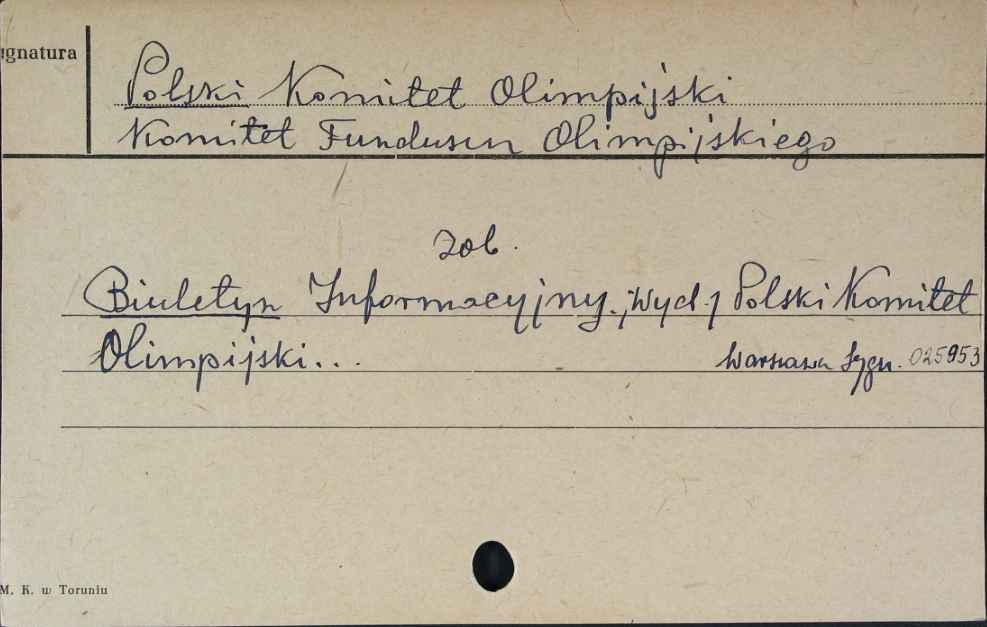 ignatura
Polski Komitet Olimpijski
Komitet Funduszu Olimpijskiego
zob.
Biuletyn Informacyjny. [Wyd.] Polski Komitet
Olimpijski...
Warszawa Sygn. 025953
M. K. w Toruniu